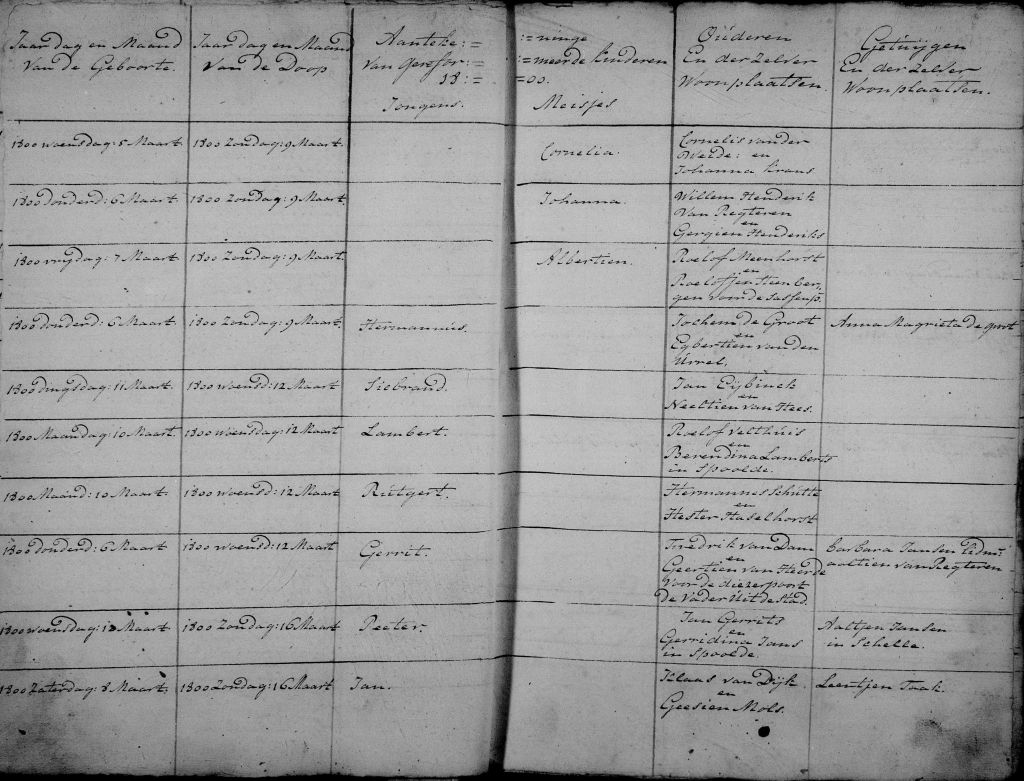 Jaar dag en Maand Jaar dag en Maand Aanteke:= :=ninge Ouderen Getuijgen
van de Geboorte. van de Doop van gerefor:= :=meerde kinderen En derzelver En derzelver
18:= =00. Woonplaatsen. Woonplaatsen.
Jongens. Meisjes
1800 woensdag: 5 Maart. 1800 Zondag: 9 Maart. Cornelia. Cornelis van der
Weide: en
Johanna Kraus
1800 donderd: 6 Maart. 1800 Zondag: 9 Maart. Johanna. Willem Henderik
Van Regteren
en
Gergien Henderiks
1800 vrijdag: 7 Maart 1800 Zondag: 9 Maart. Albertien. Roelof Meenhorst
en
Roeloffjen Steenber,
gen van de
1800 donderd: 6 Maart. 1800 Zondag: 9 Maart. Hermannus. Jochem de Groot Anna Magrieta de groot
en
Egbertien van den
Urrel.
1800 dingsdag: 11 Maart. 1800 woensd: 12 Maart Siebrand. Jan Eijbinck
en
Neeltien van Hees.
1800 Maandag: 10 Maart. 1800 woensdag: 12 Maart Lambert. Roelof Velthuis
en
Berendina Lamberts
in Spoolde.
1800 Maand: 10 Maart. 1800 woensd: 12 Maart Rutgert. Hermannes Schutte
en
Hester Haselhorst
1800 donderd: 6 Maart 1800 woensd: 12 Maart Gerrit. Fredrik van Dam Barbara Jansen
en aaltien van Regteren
Geertien van Heerde
Voor de diezerpoort
de Vader Uit de stad.
1800 woensdag: 12 Maart 1800 Zondag: 16 Maart Peeter. Jan Gerrits Aaltjen Jansen
en in Schelle.
Gerridina Jans
in Spoolde.
1800 Zaterdag: 8 Maart. 1800 Zondag: 16 Maart Jan. Klaas van Dijk Leentjen Taak.
en
Geesien Mols.